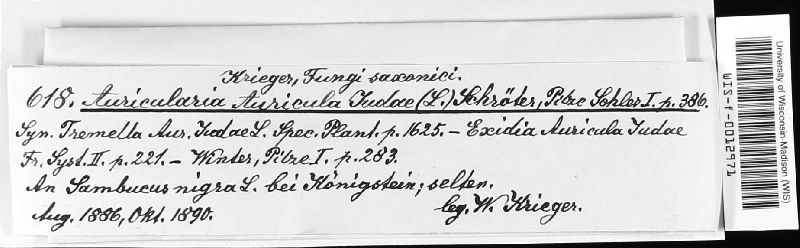 Krieger, Fungi saxonici.
618. Auricularia Auricula Judae (L.) Schröter, Pilze Schles I. p. 386.
Syn. Tremella Aur. Judae L. Spec. Plant. p. 1625. – Exidia Auricula Judae
Fr. Syst. II. p. 221. – Winter, Pilze I. p. 283.
An Sambucus nigra L. bei Königstein; selten.
Aug. 1886, Okt. 1890.
leg. W. Krieger.
University of Wisconsin-Madison (WIS)
WIS-f-0012971